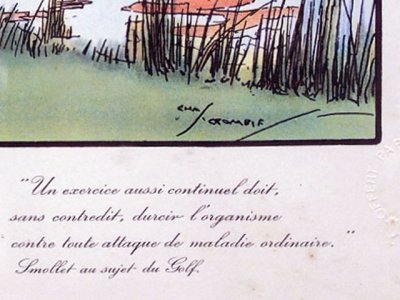 CHAS. CROMBIE
"Un exercice aussi continuel doit,
sans contredit, durcir l'organisme
contre toute attaque de maladie ordinaire."
Smollet au sujet du Golf.